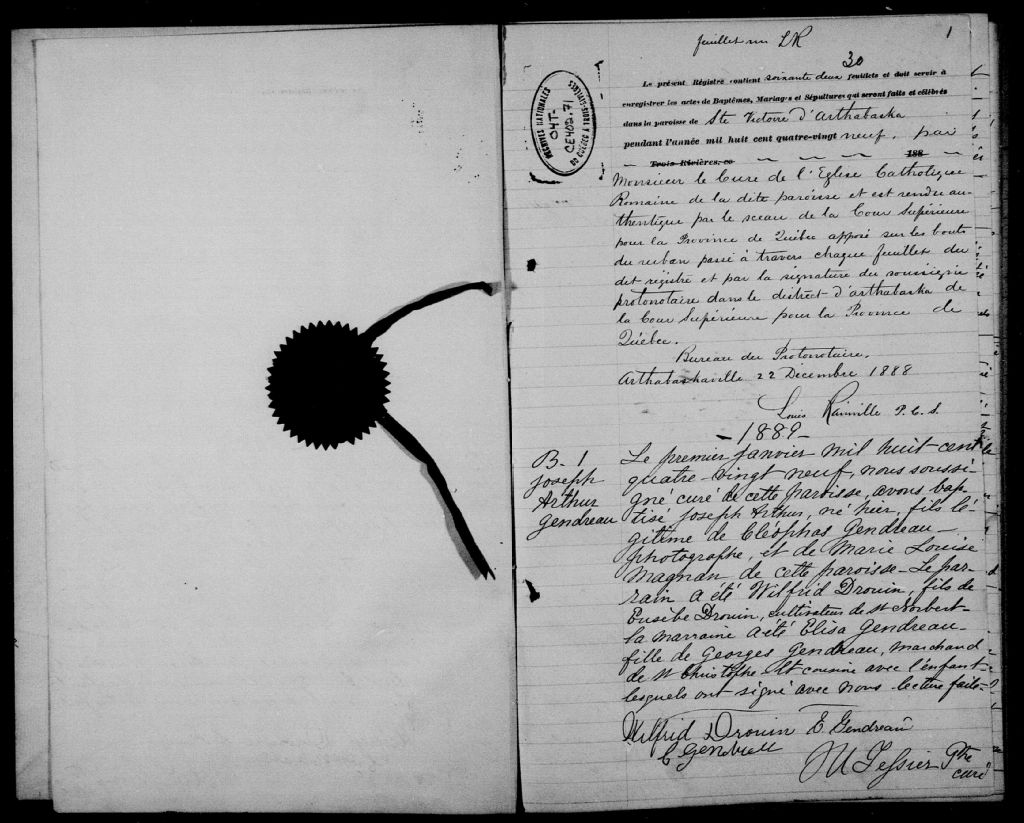 feuillet un LR
1
30
Le présent Régistre contient soixante deux feuillets et doit servir à
enregistrer les actes de Baptêmes, Mariages et Sépultures qui seront faits et célébrés
dans la paroisse de Ste Victoire d'Arthabaska
pendant l'année mil huit cent quatre-vingt neuf, par
Trois-Rivières, ce 188
Monsieur le Curé de l'Eglise Catholique
Romaine de la dite paroisse et est rendu au-
thentique par le sceau de la Cour Supérieure
pour la Province de Québec apposé sur les bouts
du ruban passé à travers chaque feuillet du
dit régistre et par la signature du soussigné
protonotaire dans le district d'Arthabaska de
la Cour Supérieure pour la Province de
Québec.
Bureau du Protonotaire.
Arthabaskaville 22 Décembre 1888
Louis Rainville P.C.S.
ARCHIVES NATIONALES
04T-
CE402.71
DU QUÉBEC À TROIS-RIVIÈRES
-1889-
B-1
Joseph
Arthur
Gendreau
Le premier Janvier mil huit cent
quatre-vingt neuf, nous soussi-
gné curé de cette paroisse, avons bap-
tisé Joseph Arthur, né hier, fils lé-
gitime de Cléophas Gendreau
photographe, et de Marie Louise
Magnan de cette paroisse- Le par-
rain a été Wilfrid Drouin, fils de
Eusèbe Drouin, cultivateur de St Norbert-
la marraine a été Elisa Gendreau-
fille de Georges Gendreau, marchand
de St Christophe et cousine avec l'enfant-
lesquels ont signé avec nous lecture faite-
Wilfrid Drouin E. Gendreau
C Gendreau
M Tessier Ptre
curé